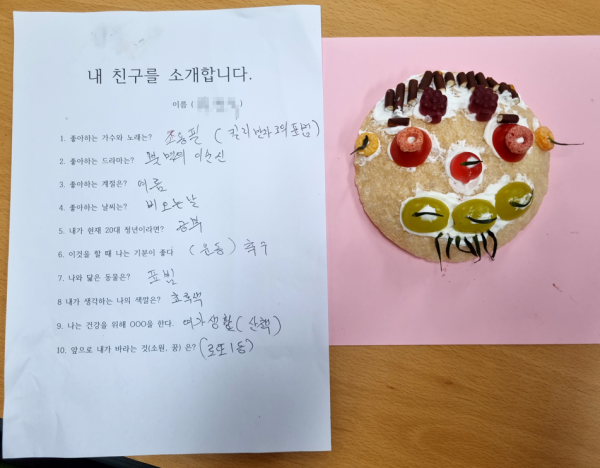 내 친구를 소개합니다.
이름 ( )
1. 좋아하는 가수와 노래는? 조용필 (킬리만자로의 표범)
2. 좋아하는 드라마는? 불멸의 이순신
3. 좋아하는 계절은? 여름
4. 좋아하는 날씨는? 비오는날
5. 내가 현재 20대 청년이라면? 공부
6. 이것을 할 때 나는 기분이 좋다 (운동) 축구
7. 나와 닮은 동물은? 표범
8 내가 생각하는 나의 색깔은? 초록색
9. 나는 건강을 위해 OOO을 한다. 여가생활 (산책)
10. 앞으로 내가 바라는 것(소원, 꿈) 은? (로또 1등)